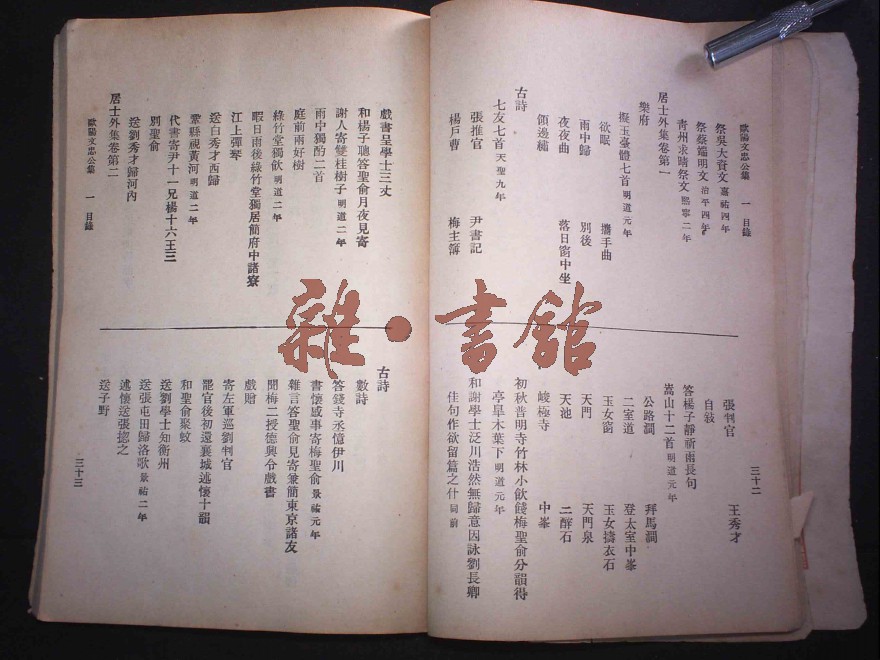 歐陽文忠公集 一 目錄
祭吳大資文嘉祐四年
祭蔡端明文治平四年
靑州求晴祭文熙寧二年
居士外集卷第一
樂府
擬玉臺體七首明道元年
欲眠 攜手曲
雨中歸 別後
夜夜曲 落日窗中坐
領邊繡
古詩
七友七首天聖九年
張推官 尹書記
楊戶曹 梅主簿
張判官 王秀才
自敍
答楊子靜祈雨長句
嵩山十二首明道元年
公路澗 拜馬澗
二室道 登太室中峯
玉女窗 玉女擣衣石
天門 天門泉
天池 二醉石
峻極寺 中峯
初秋普明寺竹林小飲餞梅聖俞分韻得
亭皐木葉下明道元年
和謝學士泛川浩然無歸意因詠劉長卿
佳句作欲留篇之什同前
三十二
戲書呈學士三丈
和楊子聰答聖俞月夜見寄
謝人寄雙桂樹子明道二年
雨中獨酌二首
庭前兩好樹
綠竹堂獨飮明道二年
暇日雨後綠竹堂獨居簡府中諸寮
江上彈琴
送白秀才西歸
鞏縣視黃河明道二年
代書寄尹十一兄楊十六王三
別聖俞
送劉秀才歸河內
居士外集卷第二
歐陽文忠公集 一 目錄
古詩
數詩
答錢寺丞憶伊川
書懷感事寄梅聖俞景祐元年
雜言答聖俞見寄兼簡東京諸友
聞梅二授德興令戲書
戲贈
寄左軍巡劉判官
罷官後初還襄城述懷十韻
和聖俞聚蚊
送劉學士知衡州
送張屯田歸洛歌景祐二年
述懷送張惣之
送子野
三十三
雜·書館